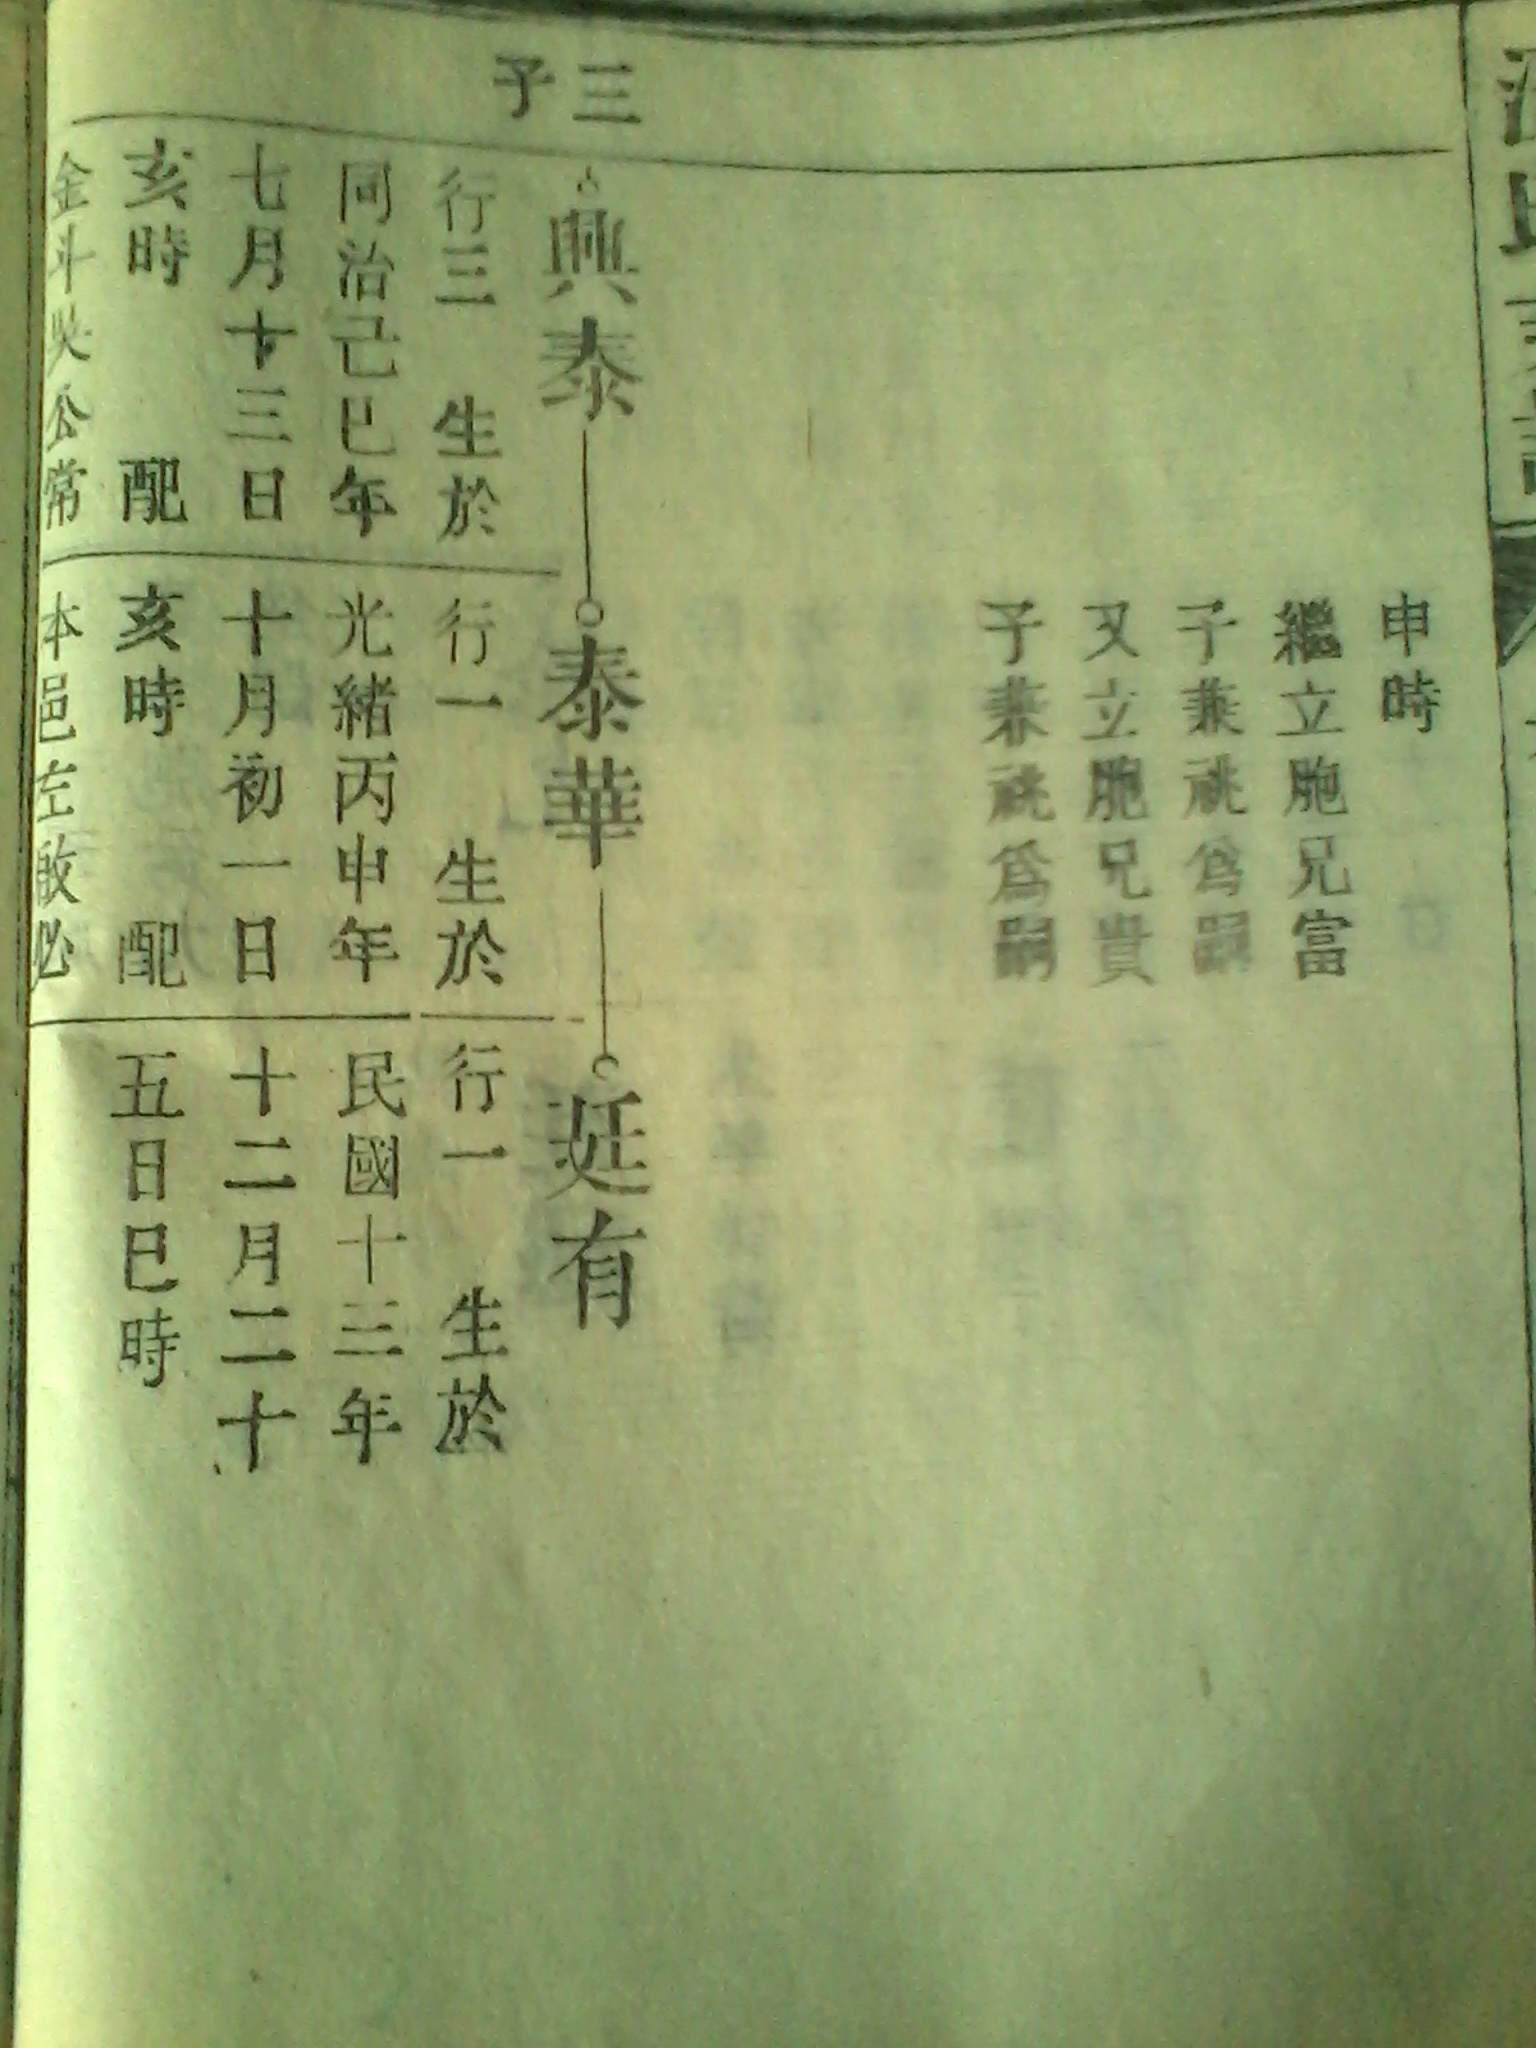 申時
繼立胞兄富
子兼祧為嗣
又立胞兄貴
子兼祧為嗣
三子
興泰
行三 生於
同治己巳年
七月十三日
亥時 配
金斗吳公常
泰華
行一 生於
光緒丙申年
十月初一日
亥時 配
本邑左啟必
延有
行一 生於
民國十三年
十二月二十
五日巳時